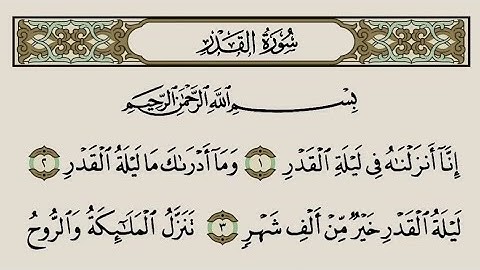 سُورَةُ القَدْرِ
بِسْمِ اللَّهِ الرَّحْمَٰنِ الرَّحِيمِ
إِنَّآ أَنزَلْنَٰهُ فِى لَيْلَةِ ٱلْقَدْرِ ١ وَمَآ أَدْرَىٰكَ مَا لَيْلَةُ ٱلْقَدْرِ ٢
لَيْلَةُ ٱلْقَدْرِ خَيْرٌ مِّنْ أَلْفِ شَهْرٍ ٣ تَنَزَّلُ ٱلْمَلَٰٓئِكَةُ وَٱلرُّوحُ